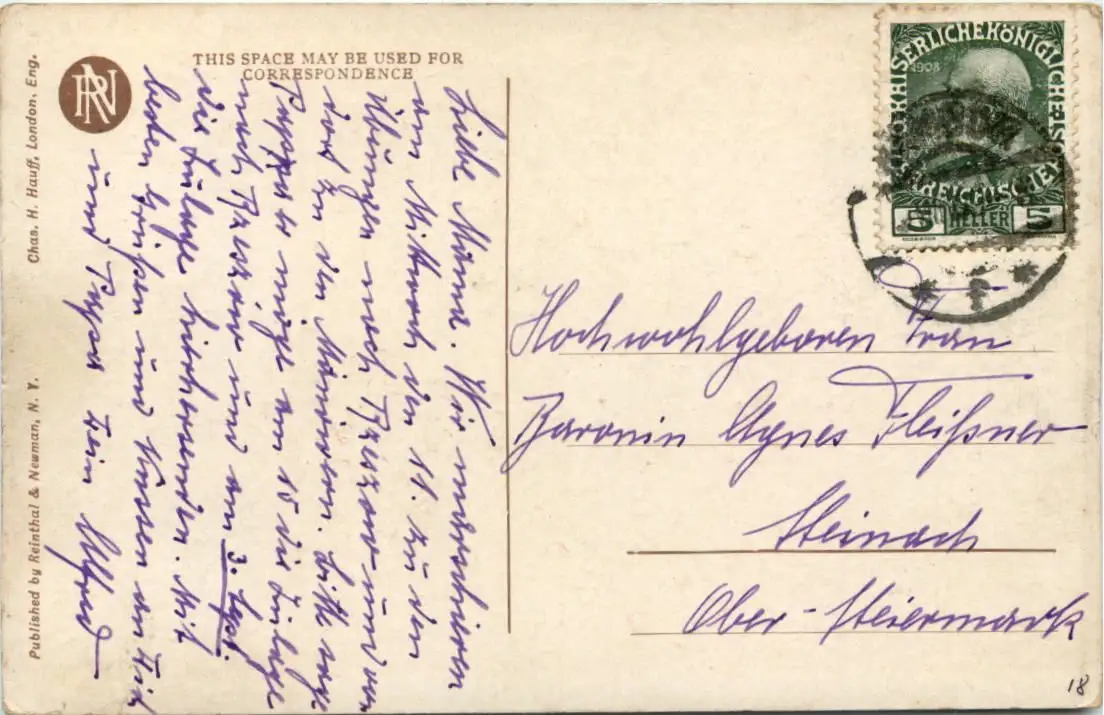 THIS SPACE MAY BE USED FOR
CORRESPONDENCE
RN
Chas. H. Hauff, London, Eng.
Published by Reinthal & Newman, N. Y.
Liebe Mama. Wir marschieren
am Mittwoch den 11. zu den
Übungen nach Rzeszow und von
dort zu den Manövern. Bitte sage
Papa er möge am 15 die Zulage
nach Rzeszow und am 3. Sept.
die Zulage hierhersenden. Mit
besten Grüßen und Küssen an Dich
und Papa Dein Alfred
KAISERLICHE KÖNIGLICHE ÖSTERREICHISCHE
1908
5 HELLER 5
Hochwohlgeboren Frau
Baronin Agnes Fleißner
Steinach
Ober-Steiermark
18